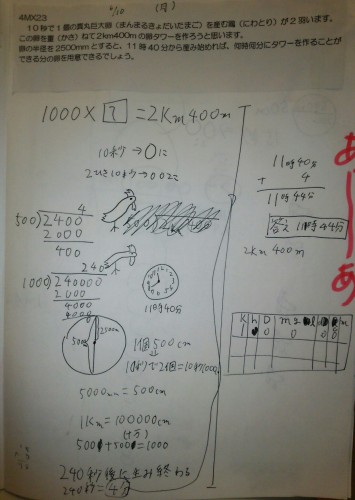 4MX23
4/10 (月)
10秒で1個の真丸巨大卵(まんまるきょだいたまご)を産む鶏(にわとり)が2羽います。
この卵を重(かさ)ねて2km400mの卵タワーを作ろうと思います。
卵の半径を2500mmとすると、11時40分から産み始めれば、何時何分にタワーを作ることが
できる分の卵を用意できるでしょう。
1000×?=2Km400m
10秒→0に
2ひき10秒→00 2こ
4
500)2400
2000
400
240
1000)240000
2000
4000
4000
11時40分
500
2500
1個500cm
10秒で2個=10秒1000cm
5000mm=500cm
1Km=100000cm
(十万)
500+500=1000
240秒後に生み終わる
240秒=4分
11時40分
+ 4
11時44分
答え 11時44分
2km 400m
K h D m d c m
1 0 0 0 0 0